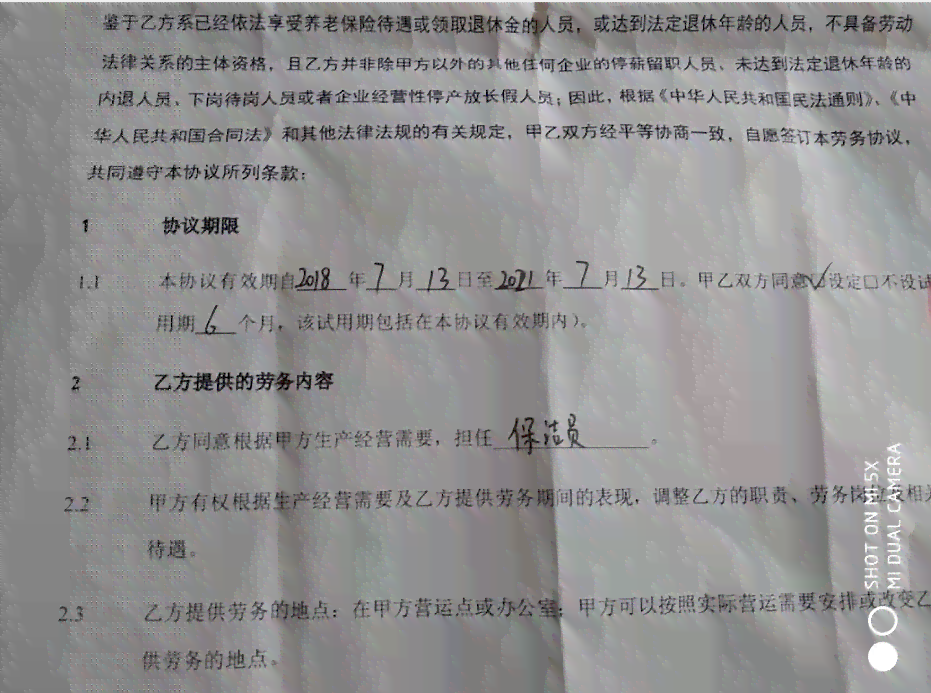 鉴于乙方系已经依法享受养老保险待遇或领取退休金的人员，或达到法定退休年龄的人员，不具备劳动
法律关系的主体资格，且乙方并非除甲方以外的其他任何企业的停薪留职人员、未达到法定退休年龄的
内退人员、下岗待岗人员或者企业经营性停产放长假人员；因此，根据《中华人民共和国民法通则》、《中
华人民共和国合同法》和其他法律法规的有关规定，甲乙双方经平等协商一致，自愿签订本劳务协议，
共同遵守本协议所列条款：
1 协议期限
1.1 本协议有效期自2018年7月13日至2021年7月13日。甲乙双方同意☑设定□不设试
用期6个月，该试用期包括在本协议有效期内）。
2 乙方提供的劳务内容
2.1 乙方同意根据甲方生产经营需要，担任保洁员。
2.2 甲方有权根据生产经营需要及乙方提供劳务期间的表现，调整乙方的职责、劳务相关
待遇。
2.3 乙方提供劳务的地点：在甲方营运点或办公室；甲方可以按照实际营运需要安排或改变乙
供劳务的地点。
SHOT ON MI 5X
MI DUAL CAMERA